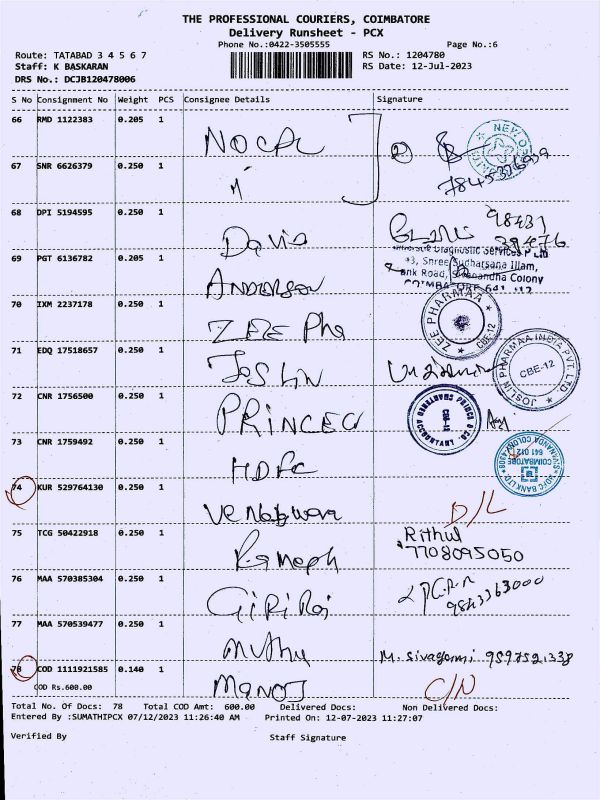 THE PROFESSIONAL COURIERS, COIMBATORE
Delivery Runsheet - PCX
Phone No.:0422-3505555 Page No.:6
Route: TATABAD 3 4 5 6 7 RS No.: 1204780
Staff: K BASKARAN RS Date: 12-Jul-2023
DRS No.: DCJB120478006
S No Consignment No Weight PCS Consignee Details Signature
66 RMD 1122383 0.205 1 NOCPL 2
67 SNR 6626379 0.250 1
68 DPI 5194595 0.250 1 David 98431
69 PGT 6136782 0.205 1 ANDERSEN
Diagnostic Services P Ltd
Shree Sudharsana Illam,
Bank Road,
Colony
70 IXM 2237178 0.250 1 ZEE Pha ZEE PHARMAA CBE-12
71 EDQ 17518657 0.250 1 JOSLIN JOSLIN PHARMAA INDIA PVT. LTD CBE-12
72 CNR 1756500 0.250 1 PRINCE
73 CNR 1759492 0.250 1 HDFC HDFC BANK LTD COIMBATORE 641 012
74 KUR 529764130 0.250 1 D/L
75 TCG 50422918 0.250 1 Ramesh Rithul
7708095050
76 MAA 570385304 0.250 1 GIRI Raj
9843363000
77 MAA 570539477 0.250 1 Muthu M. Sivagami
78 COD 1111921585 0.140 1 MANOJ C/N
COD Rs.600.00
Total No. Of Docs: 78 Total COD Amt: 600.00 Delivered Docs: Non Delivered Docs:
Entered By :SUMATHIPCX 07/12/2023 11:26:40 AM Printed On: 12-07-2023 11:27:07
Verified By Staff Signature